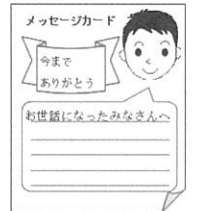 メッセージカード
今まで
ありがとう
お世話になったみなさんへ